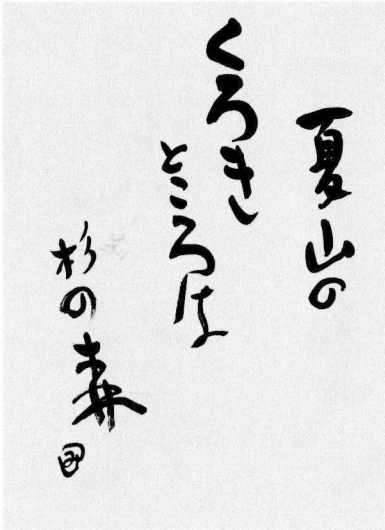 夏山の
くろき
ところは
杉の森